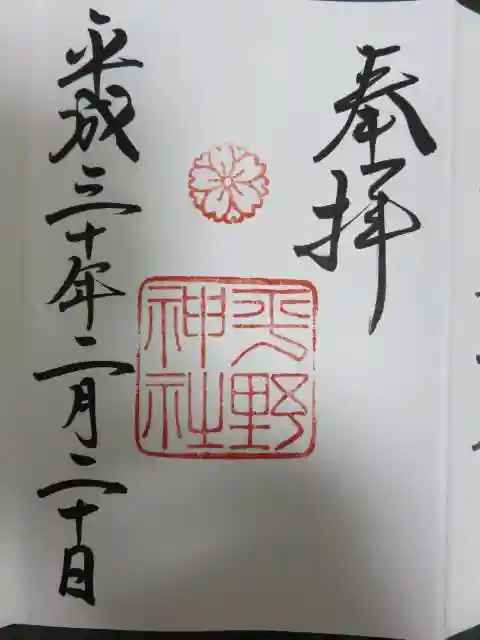 奉拝
平野
神社
平成三十年二月二十日